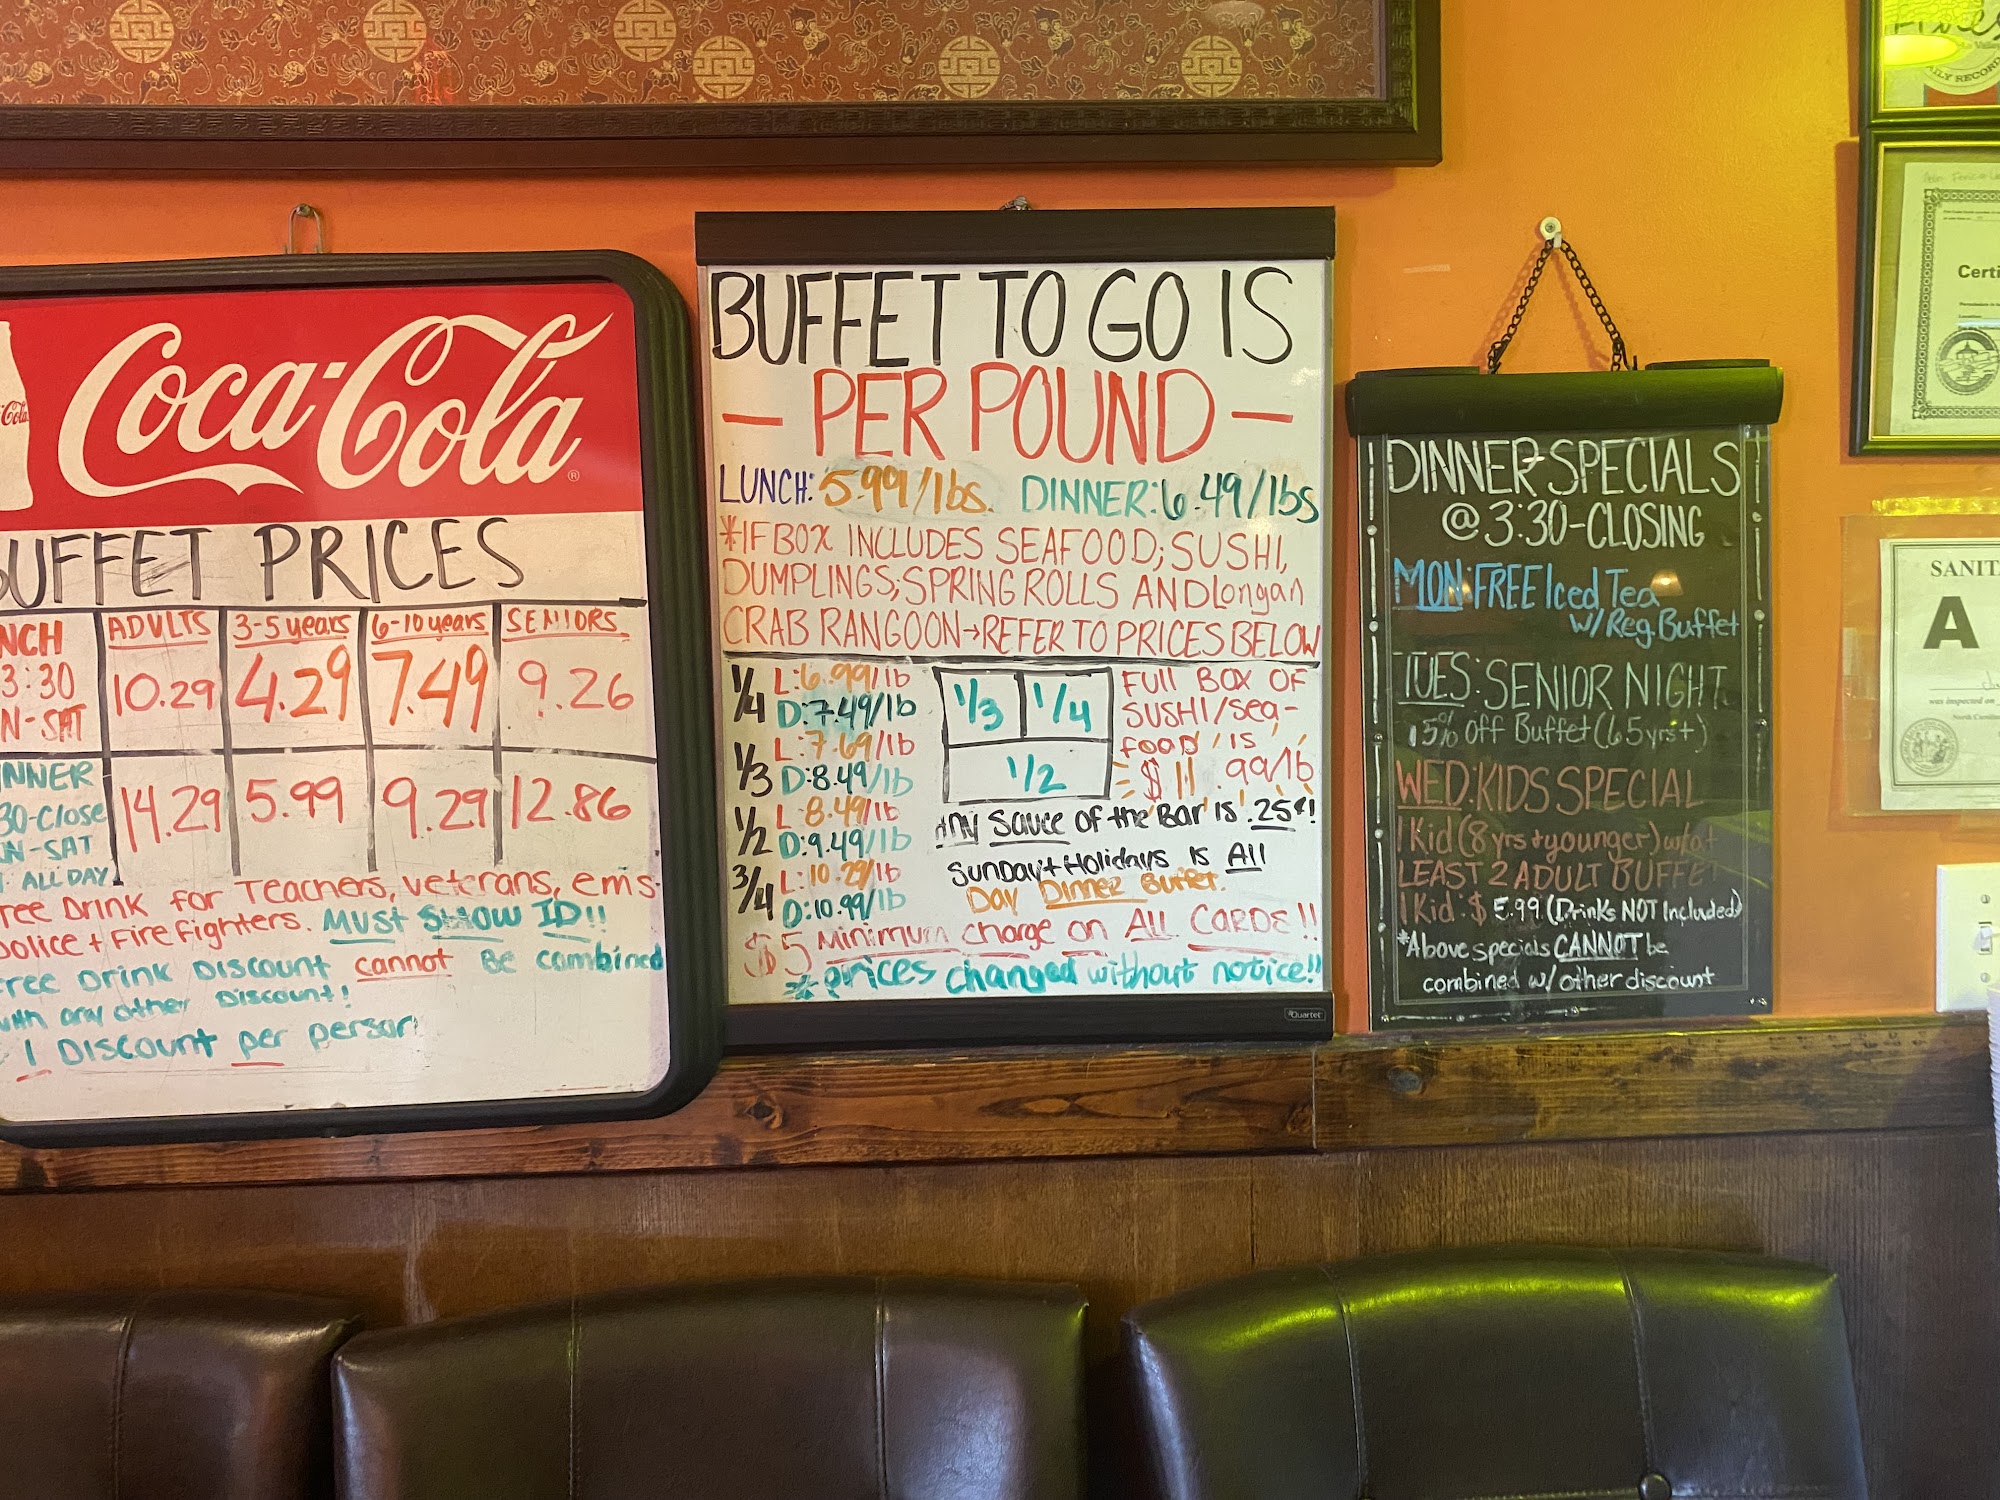 Coca-Cola
Coca-Cola
BUFFET PRICES
ADULTS 3-5 years 6-10 years SENIORS
3:30 10.29 4.29 7.49 9.26
N-SAT
30-Close 14.29 5.99 9.29 12.86
N-SAT
ALL DAY
Free Drink for Teachers, veterans, ems
police + Fire fighters. MUST SHOW ID!!
Free Drink Discount cannot Be combined
with any other Discount!
1 Discount per person
BUFFET TO GO IS
- PER POUND -
LUNCH: 5.99/lbs. DINNER: 6.49/lbs
*IF BOX INCLUDES SEAFOOD; SUSHI,
DUMPLINGS; SPRING ROLLS AND Longan
CRAB RANGOON→REFER TO PRICES BELOW
1/4 L: 6.99/lb
D: 7.49/lb
1/3 L: 7.69/lb
D: 8.49/lb
1/2 L: 8.49/lb
D: 9.49/lb
3/4 L: 10.29/lb
D: 10.99/lb
1/3 1/4
1/2
FULL BOX OF
SUSHI/Sea-
food is
$11.99/lb
Any Sauce of the Bar is .25¢!
Sunday + Holidays is All
Day Dinner Buffet.
$5 Minimum charge on ALL CARDS!!
* prices changed without notice!!
Quartet
DINNER SPECIALS
@ 3:30-CLOSING
MON: FREE Iced Tea
w/ Reg. Buffet
TUES: SENIOR NIGHT
15% Off Buffet (65yrs+)
WED: KIDS SPECIAL
1 Kid (8yrs + younger) w/at
LEAST 2 ADULT BUFFET
1 Kid: $ 5.99 (Drinks NOT Included)
*Above specials CANNOT be
combined w/ other discount
DAILY RECORD
Certi
SANIT
A
was inspected on